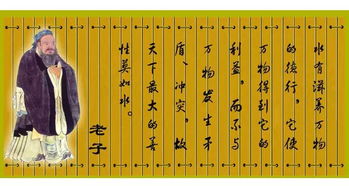 水有滋养万物
的德行，它使
万物得到它的
利益，而不与
万物发生矛
盾、冲突，故
天下最大的善
性莫如水。
老子